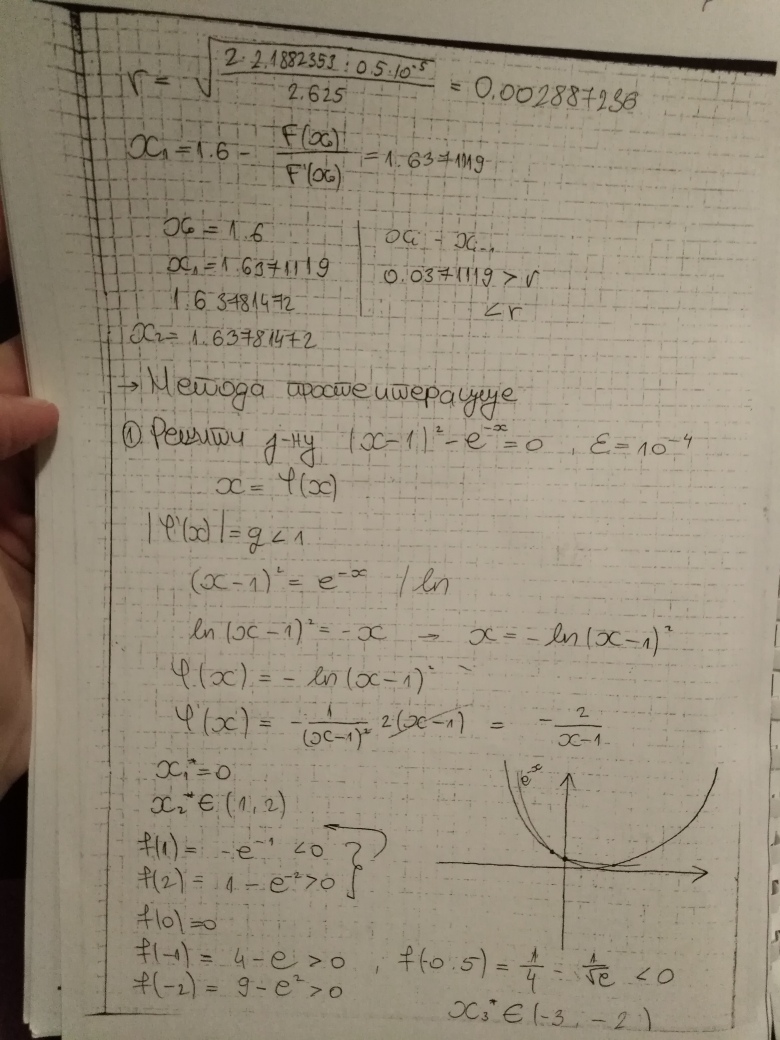 r = √(2 · 2.1882353 : 0.5·10⁻⁵ / 2.625) = 0.002887236
x₁ = 1.6 − F(x₀)/F'(x₀) = 1.6371119
x₀ = 1.6 | xᵢ − xᵢ₋₁
x₁ = 1.6371119 | 0.0371119 > r
1.63781472 | < r
x₂ = 1.63781472
→ Метода просте итерације
① Решити ј-ну (x−1)² − e⁻ˣ = 0 , ε = 10⁻⁴
x = φ(x)
|φ'(x)| = q < 1
(x−1)² = e⁻ˣ / ln
ln(x−1)² = −x → x = −ln(x−1)²
φ(x) = − ln(x−1)²
φ'(x) = − 1/(x−1)² 2(x−1) = − 2/(x−1)
x₁* = 0
x₂* ∈ (1, 2)
e⁻ˣ
f(1) = −e⁻¹ < 0
f(2) = 1 − e⁻² > 0
f(0) = 0
f(−1) = 4 − e > 0 , f(−0.5) = 1/4 − 1/√e < 0
f(−2) = 9 − e² > 0
x₃* ∈ (−3, −2)